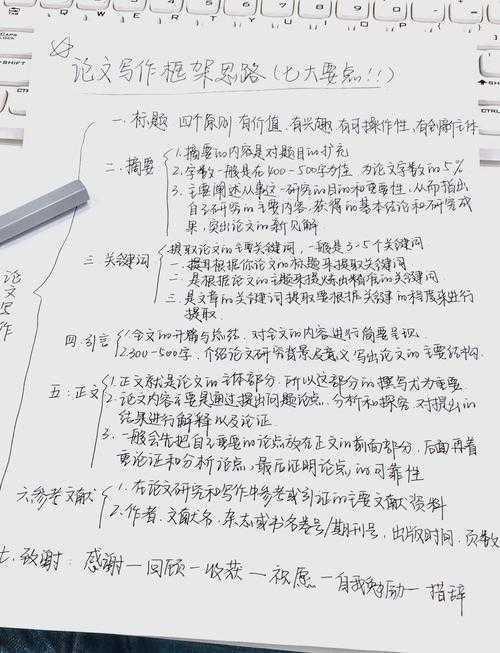 论文写作框架思路(七大要点!!)
论文写作
一. 标题 四个原则 有价值 有兴趣 有可操作性, 有创新主体
二. 摘要
1. 摘要的内容是对题目的扩充
2. 字数一般是在400-500字为佳 为论文字数的5%
3. 主要阐述从事这一研究的目的和重要性, 从而指出
自己研究的主要内容, 获得的基本结论和研究成
果, 突出论文的新见解
三 关键词
提取论文的主要关键词, 一般是3-5个关键词
一 提取根据你论文的标题来提取关键词
二. 是根据论文的主题来提炼出精准的关键词
三. 是文章的关键词提取要根据关键的程度来进行
提取
四. 引言
1. 全文的开篇与总结, 对全文的内容进行简要呈现.
2. 300-500字, 介绍论文研究背景及意义 写出论文的主要结构.
五: 正文
1. 正文就是论文的主体部分, 所以这部分的撰写尤为重要
2. 论文内容主要是通过提出问题论点, 分析和探索, 对提出的
结果进行解释以及论证.
3. 一般会先把自己重要的论点放在正文的前面部分, 后面再着
重论证和分析论点, 最后证明论点的可靠性
六. 参考文献
1. 在论文研究和写作中参考或引证的主要文献资料
2. 作者. 文献名. 杂志或书名卷号/期刊号, 出版时间. 页数
七. 致谢: 感谢一回顾一收获一祝愿一自我勉励一措辞
SHIFT